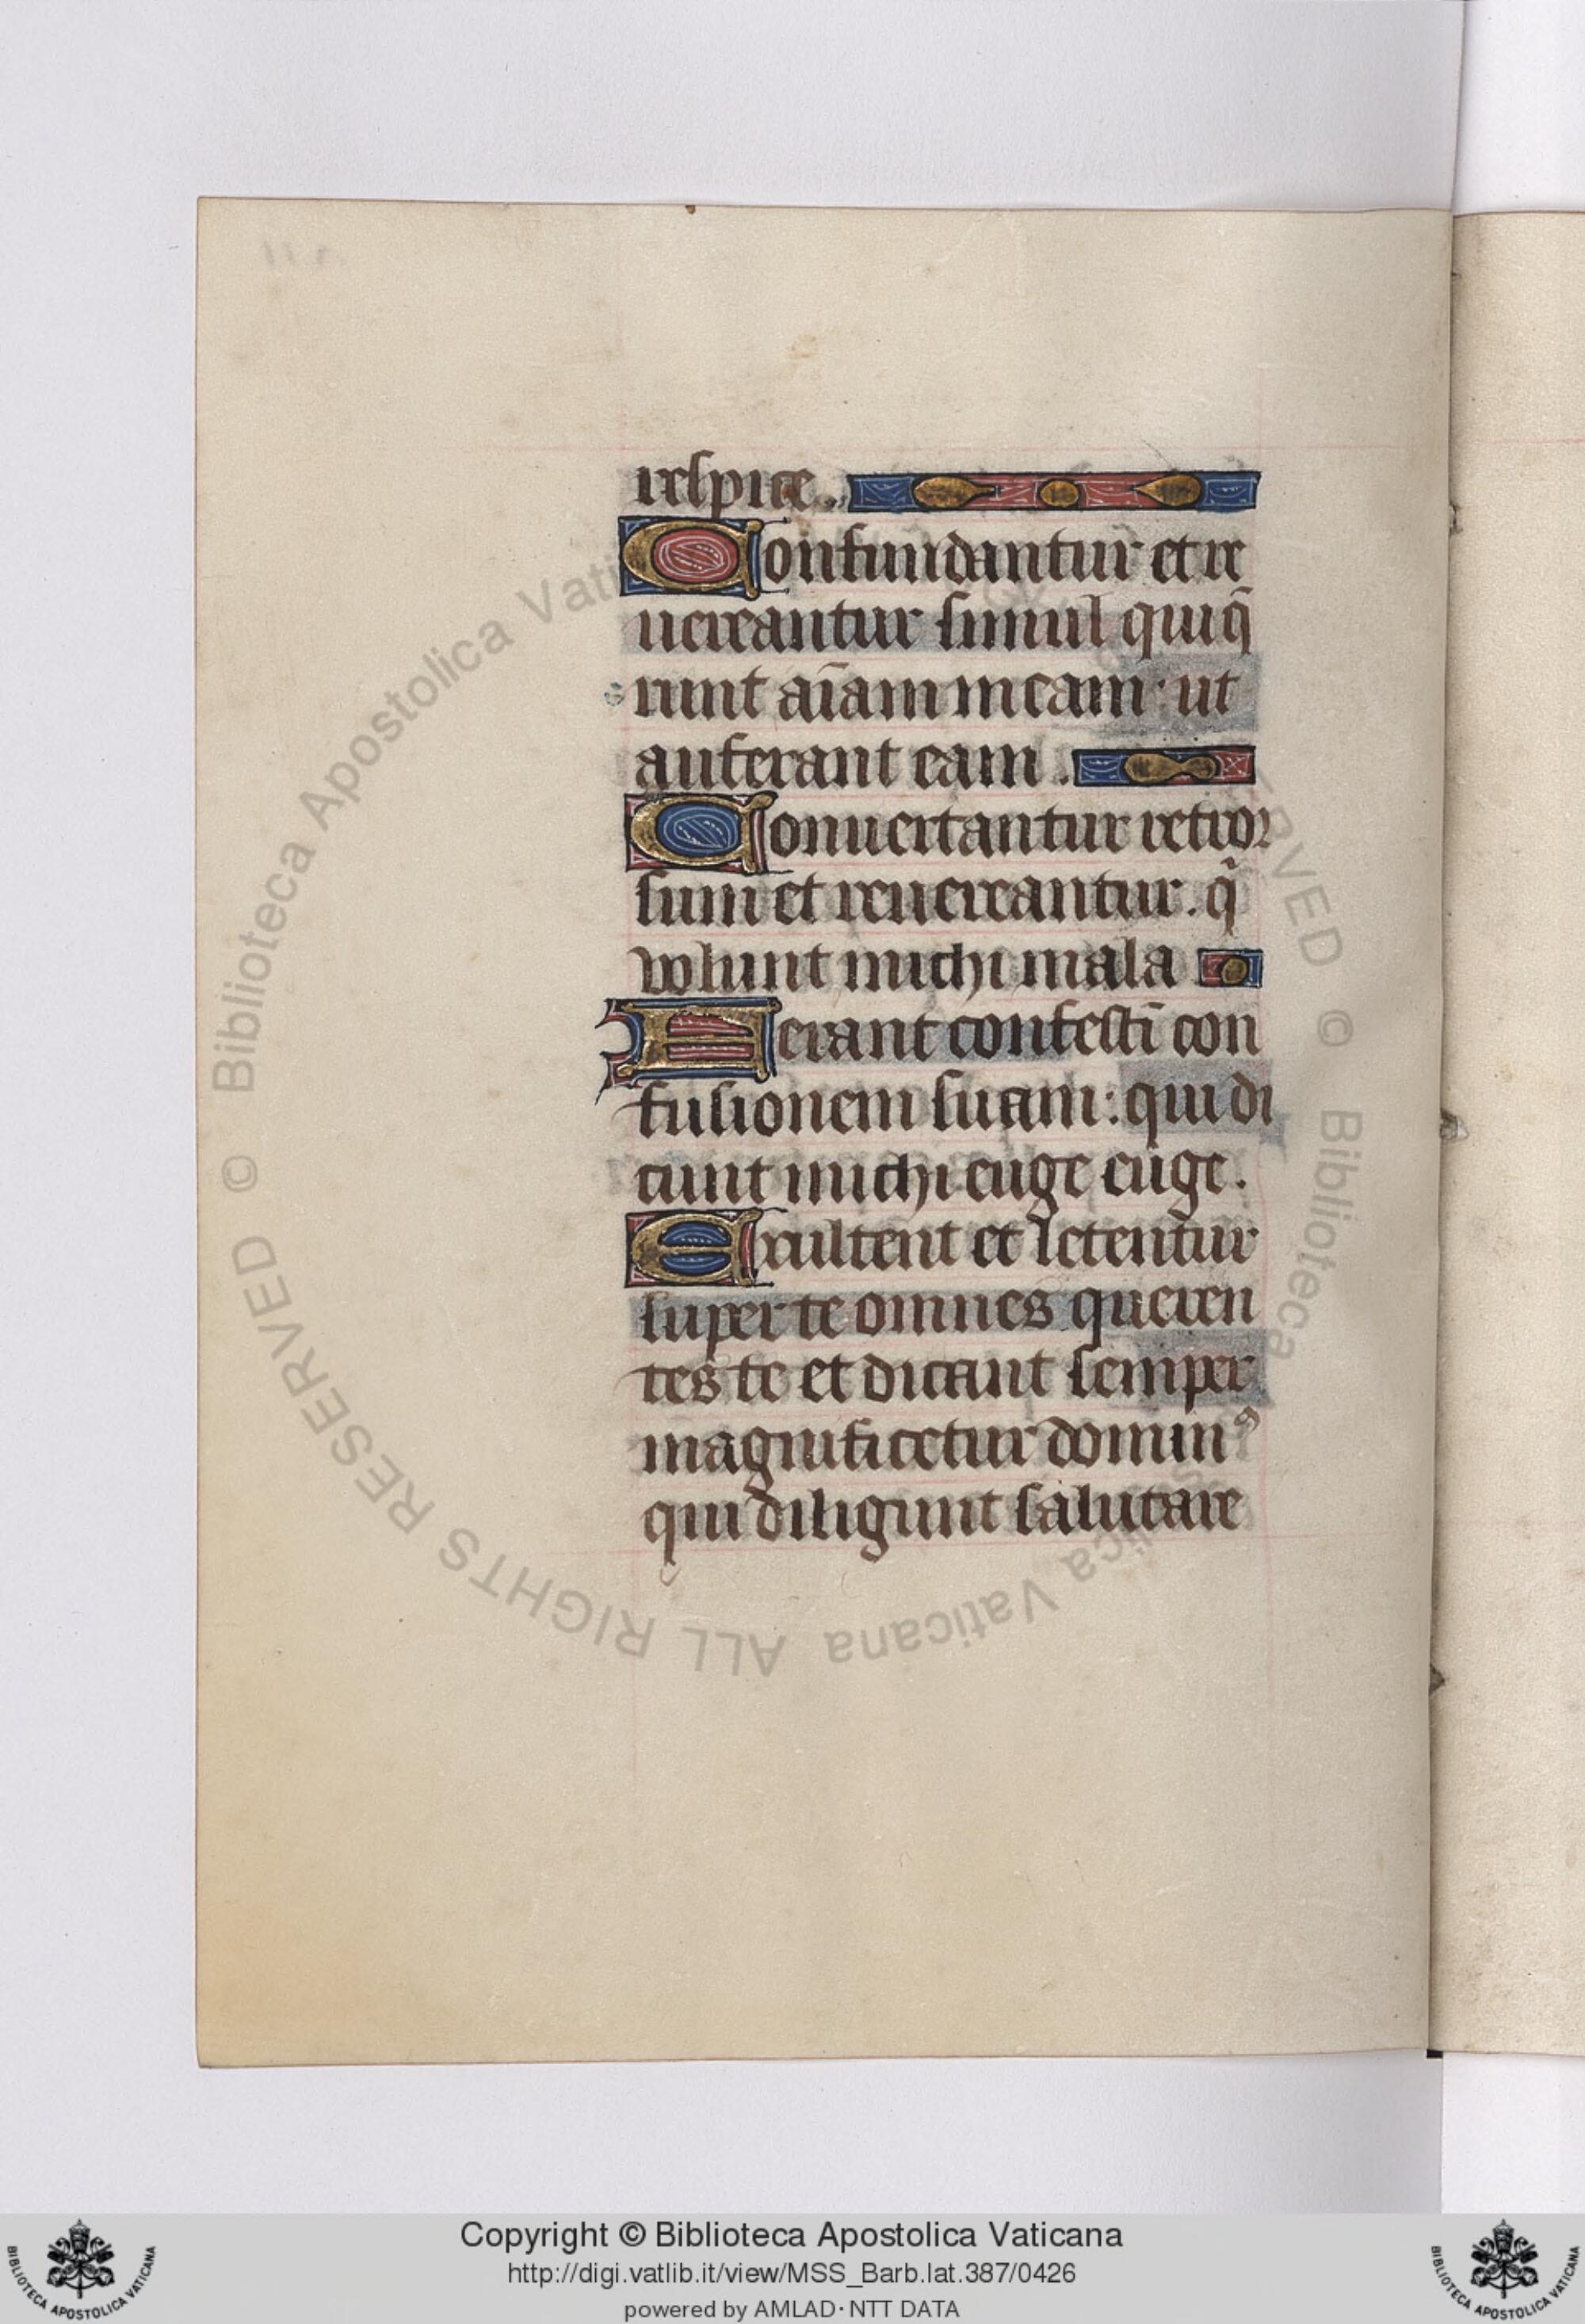 respice.
Confundantur et re
uereantur simul qui q̄
runt aīam meam · ut
auferant eam.
Conuertantur retror
sum et reuereantur. q̄
volunt michi mala
Ferant confestī con
fusionem suam: qui di
cunt michi euge euge.
Exultent et letentur
super te omnes queren
tes te et dicant semper
magnificetur dominꝰ
qui diligunt salutare
© Biblioteca Apostolica Vaticana
ALL RIGHTS RESERVED
Copyright © Biblioteca Apostolica Vaticana
http://digi.vatlib.it/view/MSS_Barb.lat.387/0426
powered by AMLAD · NTT DATA
BIBLIOTECA APOSTOLICA VATICANA
BIBLIOTECA APOSTOLICA VATICANA